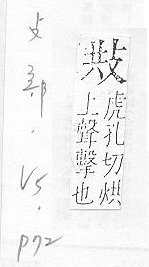 虎孔切烘
上聲擊也
攴部.V5.
p72